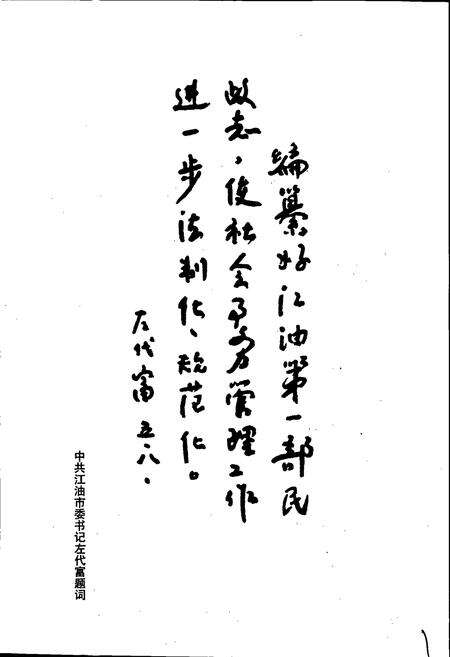 编纂好江油第一部民
政志，使社会事务管理工作
进一步法制化、规范化。
左代富 五.八.
中共江油市委书记左代富题词